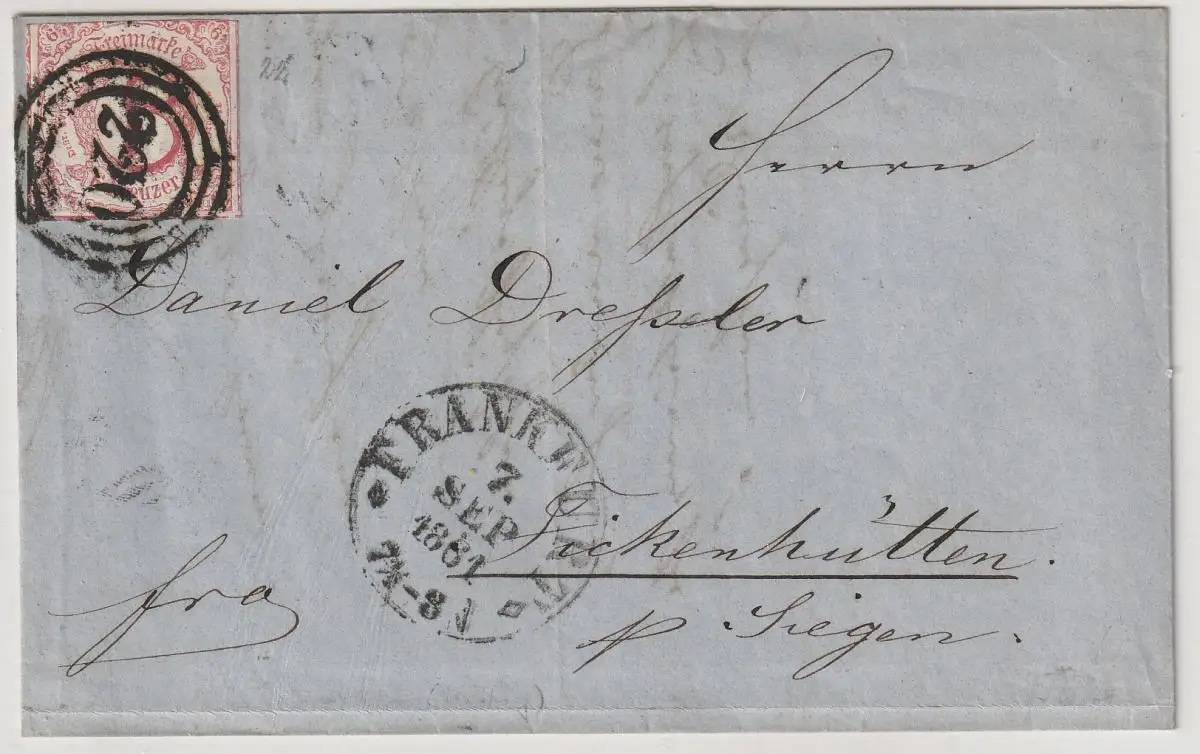 Freimarke
6 6
220
Kreuzer
22
Herrn
Daniel Dreſsler
FRANKFURT
7.
SEP
1861
7½-8 N
Fickenhütten.
fro
p Siegen.